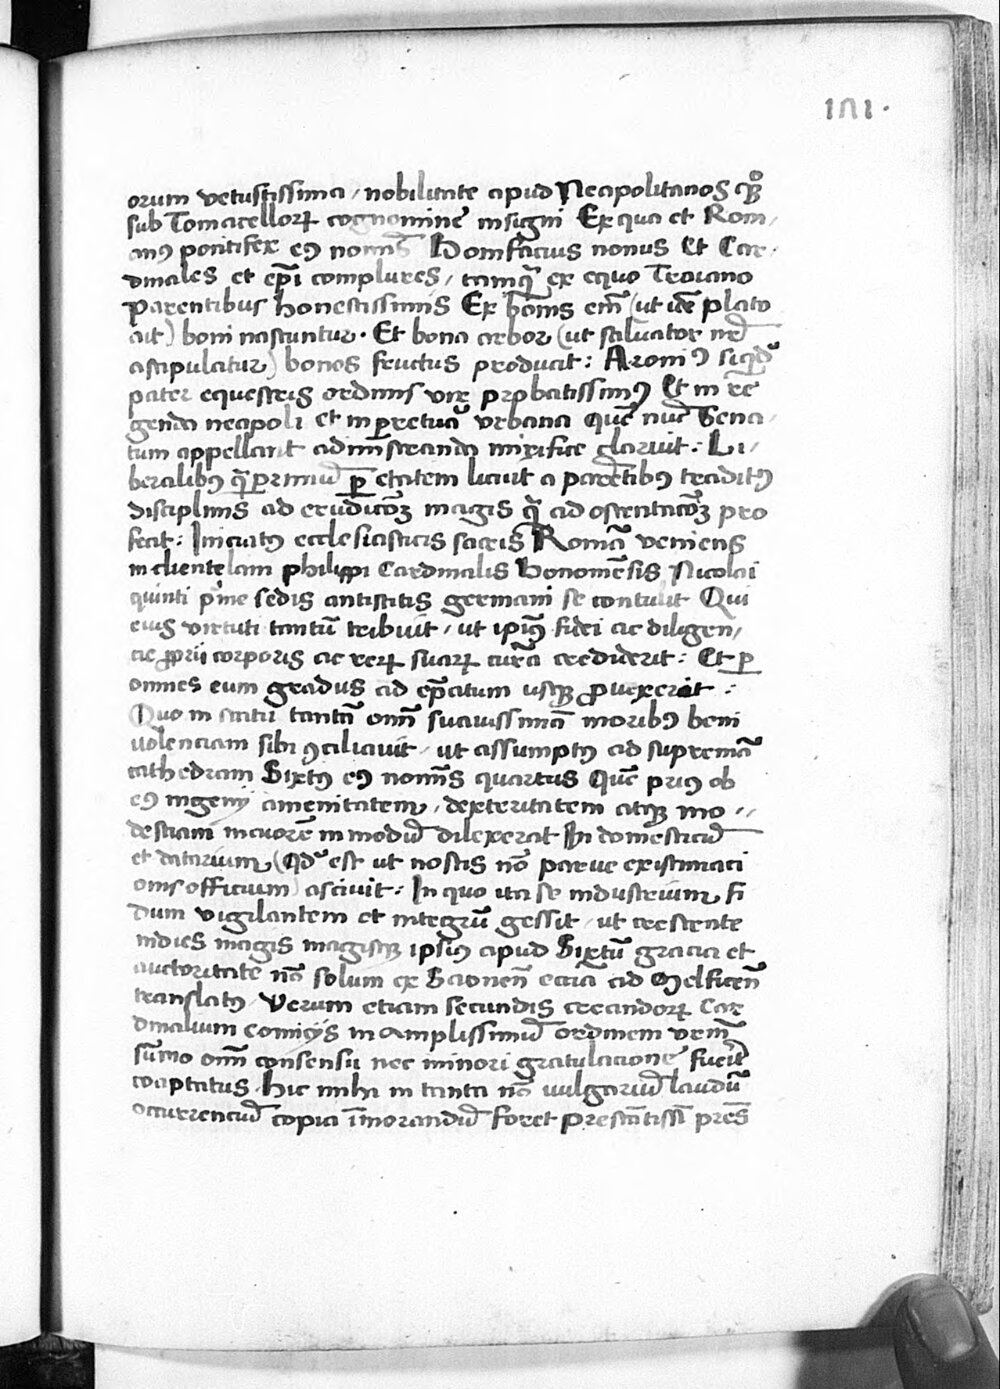 101.
orum vetustissima / nobilitate apud Neapolitanos
sub Tomacelloꝝ cognomine insigni Ex qua et Rom/
anꝰ pontifex eiꝰ nominis Bonifacius nonus Et Car/
dinales et ep̄i complures / tamqᷓ ex equo Troiano
Parentibus honestissimis Ex bonis em̄ (ut idē plato
ait) boni nascuntur. Et bona arbor (ut salvator nr̄
astipulatur) bonos fructus producit: siqᷓdē
pater equestris ordinis vir probatissimꝰ Et in re
genda neapoli et in perpetuā urbana quē nūc Sena/
tum appellant administranda mirifice claruit: Li/
beralibꝰ qᷓ primū ꝑ etatem licuit a parētibꝰ traditꝰ
disciplinis ad eruditiōꝫ magis qᷓ ad ostentatiōꝫ pro
fecit: Iniciatꝰ ecclesiasticis sacris Romā veniens
in clientelam philippi Cardinalis Bononiēsis Nicolai
quinti prime sedis antistitis germani se contulit Qui
eius virtuti tantū tribuit / ut ipiꝰ fidei ac diligen/
cie ꝓprii corporis ac reꝝ suaꝝ curā crediderit: Et ꝑ
omnes eum gradus ad ep̄atum usqꝫ ꝓvexerit:
Quo in statu tantā oīm suavissimis moribꝰ beni
volenciam sibi ꝯciliavit / ut assumptꝰ ad supremā
cathedram Sixtꝰ eiꝰ nominis quartus Quē priꝰ ob
eiꝰ ingenij amenitatem / dexteritatem atqꝫ mo//
destiam in maiorē in modū dilexerat In domesticū
et datarium (Qd̄ est ut nostis nō parve existimati
onis officium) ascivit: In quo ita se industrium fi
dum vigilantem et integrū gessit / ut crescente
indies magis magisqꝫ ipsiꝰ apud Sixtū gracia et
auctoritate nō solum ex Saonen̄ ecc̄ia ad Melficen̄
translatꝰ / Verum etiam secundis creandoꝝ Car
dinalium comicijs in amplissimū ordinem vr̄m
sūmo oīm consensu nec minori gratulacione fuerit
coaptatus hic mihi in tanta nō vulgariū laudū
occurrenciū copia īmorandū foret prestātissi pres̄